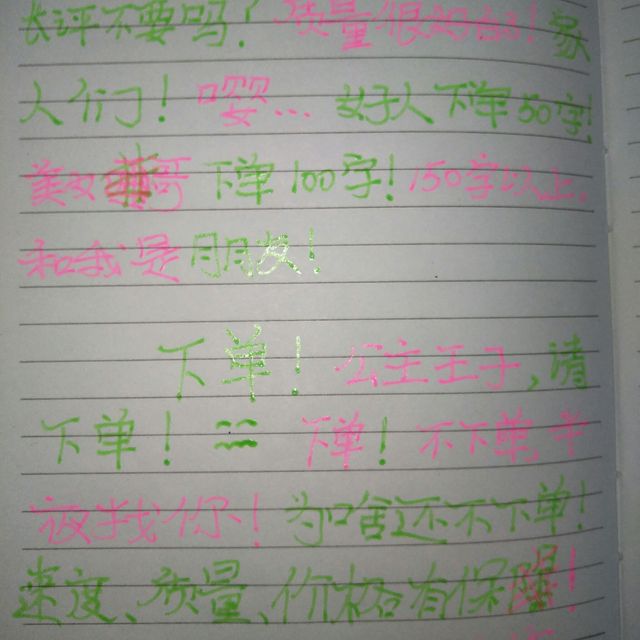 长评不要吗！质量很好的！家
人们了！嘤… 好人下单50字！
美女帅哥下单100字！150字以上，
和我是朋友！
下单！公主王子，请
下单！二 下单！不下单，半
夜找你！为啥还不下单！
速度、质量、价格有保障！